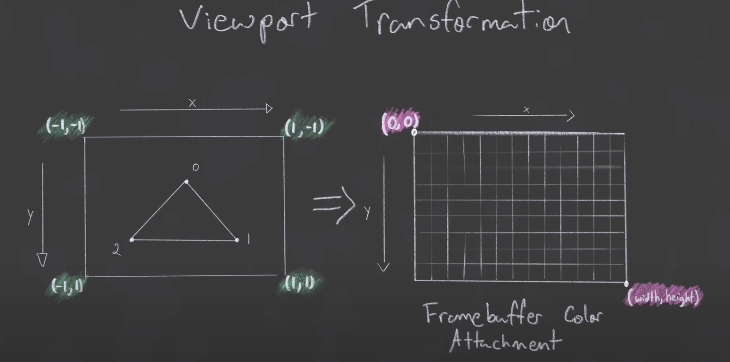 Viewport Transformation
x
x
(-1,-1)
(1,-1)
(0,0)
0
y
y
2
1
(-1,1)
(1,1)
(width,height)
Framebuffer Color
Attachment